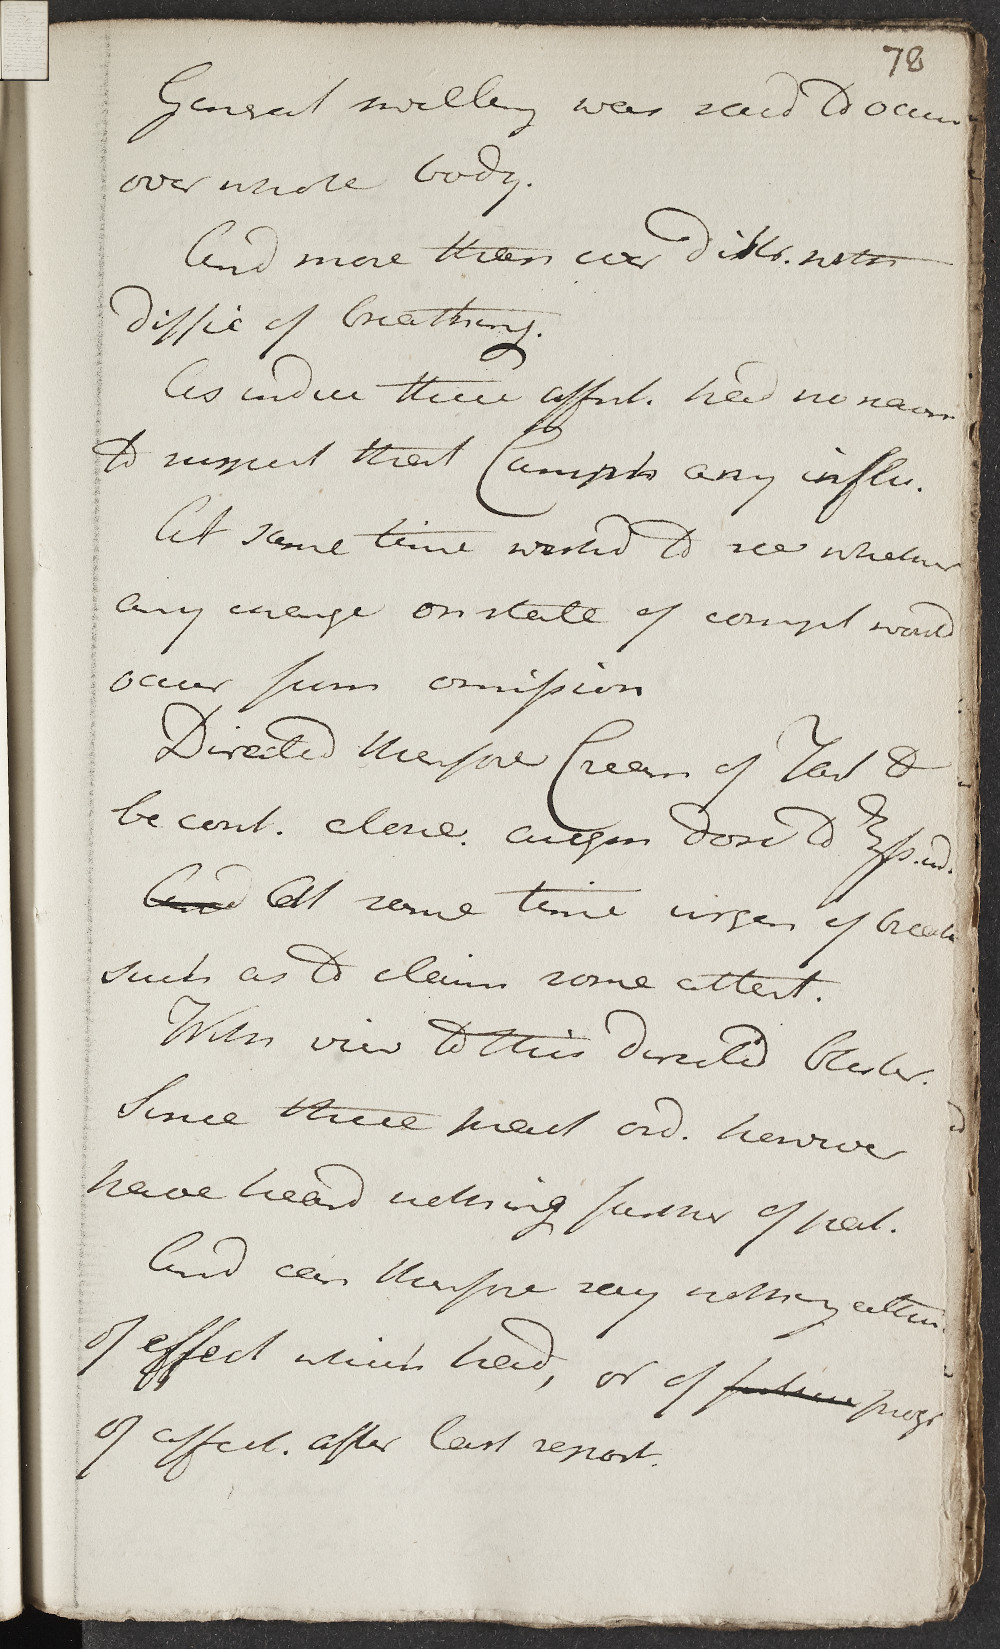 78
General swelling was said to occur
over whole body.
And more than ever distr. with
diffic of breathing.
As under these affect. had no reason
to suspect that Camph. any influ.
At same time wished to see whether
any change on state of compl would
occur from omission
Directed therefore Cream of Tart to
be cont. alone. augm dose to ʒſs. ind.
And At same time urgen of breath
such as to claim some attent.
With view to this directed blister.
Since these pract ord. however
have heard nothing further of pat.
And can therefore say nothing either
of effect which had, or of future progr
of affect. after last report.